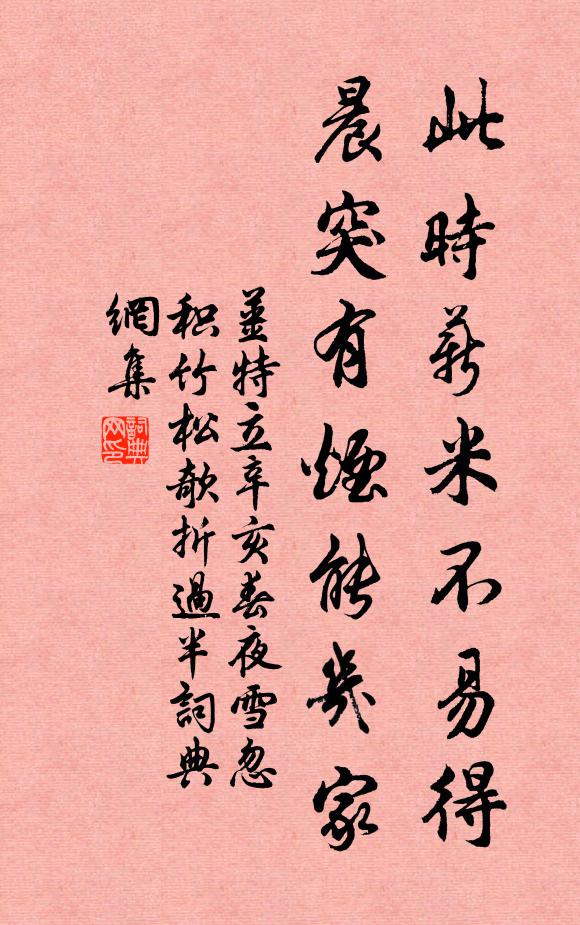 此時薪米不易得
晨突有煙能幾家
姜特立辛亥春夜雪忽
积竹松欹折過半詞典
網集
詞典
网印